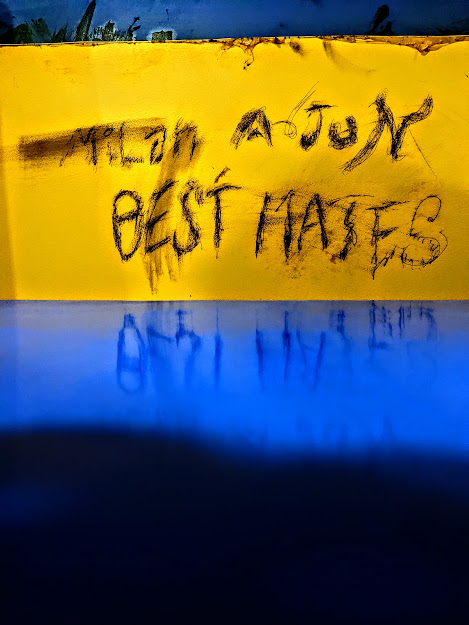 MiLan AJUN
BEST MATES